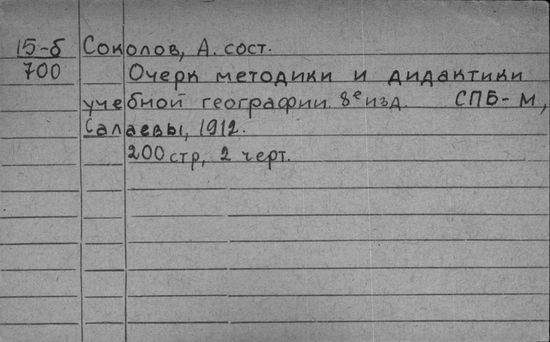 15-б Соколов, А. сост.
700 Очерк методики и дидактики
учебной географии. 8е изд. СПБ-М,
Салаевы, 1912.
200 стр, 2 черт.